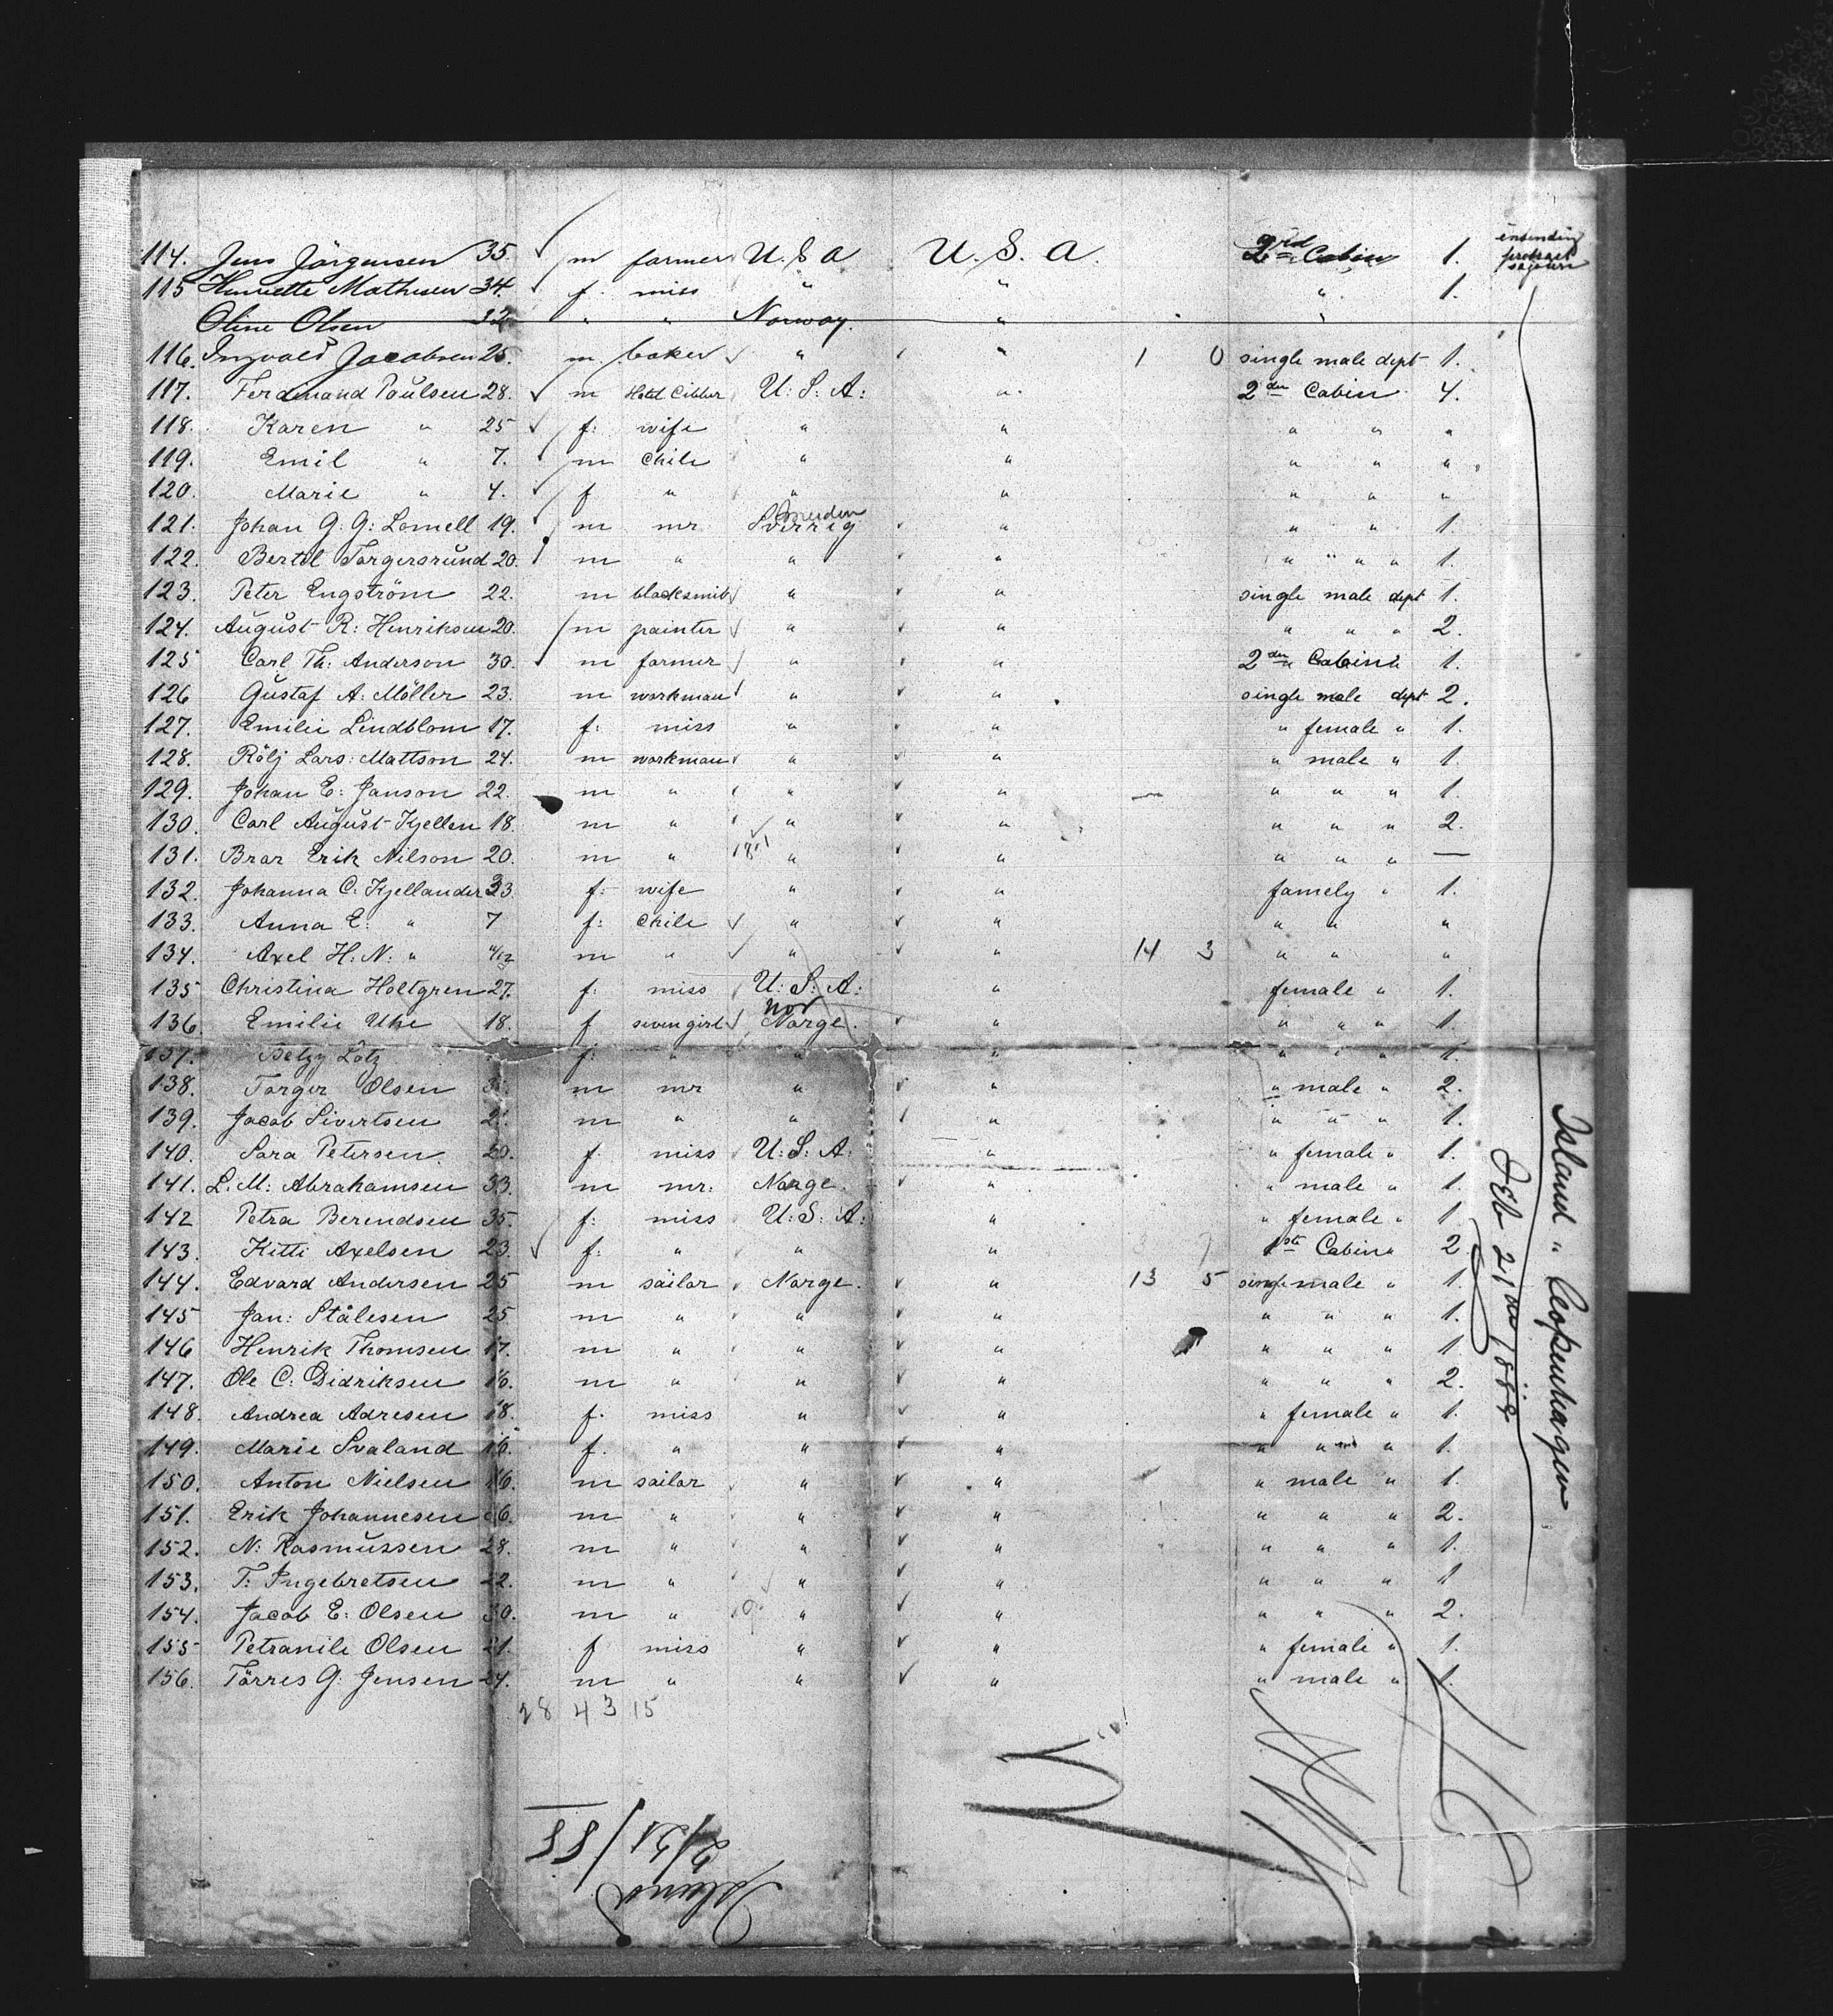 114. Jens Jörgensen 35. m farmer U. S. A U. S. A. 2rd Cabin 1. intending protract sojourn
115 Henriette Mathisen 34. f. miss " " " 1.
Oline Olsen 32 " " Norway. " "
116. Ingvald Jacobsen 25. m baker " " 1 0 single male dept 1.
117. Ferdinand Poulsen 28. m U: S: A: " 2den Cabin 4.
118. Karen " 25 f: wife " " " " "
119. Emil " 7. m chile " " " " "
120. Marie " 4. f " " " " " "
121. Johan G. G: Lomell 19. m mr Sverrig Sweden " " " 1.
122. Bertel Torgersrund 20. m " " " " " " " 1.
123. Peter Engström 22. m blacksmib " " single male dept 1.
124. August R: Henriksen 20. m painter " " " " " 2.
125 Carl Th: Anderson 30. m farmer " " 2den Cabin " 1.
126 Gustaf A. Möller 23. m workman " " single male dept 2.
127. Emilie Lindblom 17. f: miss " " " female " 1.
128. Rölj Lars: Mattson 24. m workman " " " male " 1.
129. Johan E: Janson 22. m " " " " " " 1.
130. Carl August Kjellen 18. m " " " " " " 2.
131. Brar Erik Nilson 20. m " " " " " " —
132. Johanna C. Kjellander 33. f: wife " " famely " 1.
133. Anna E. " 7 f: chile " " " " "
134. Axel H: N: " 11/12 m " " " 14 3 " " "
135 Christina Holtgren 27. f: miss U: S: A: " female " 1.
136. Emilie Uhe 18. f sewen girl Norge. Nor " " " " 1.
137. Betzy Lötz f: " " " " " " 1.
138. Torger Olsen m mr " " " male " 2.
139. Jacob Sivertsen m " " " " " " 1.
140. Sara Petersen. 20. f miss U: S: A: " " female " 1.
141. L. M: Abrahamsen 33. m mr: Norge. " " male " 1.
142 Petra Berendsen 35. f: miss U: S: A: " " female " 1.
143. Kitti Axelsen 23. f: " " " 1ste Cabin " 2
144. Edvard Andersen 25 m sailar Norge. " 13 5 single male " 1.
145 Jan: Stålesen 25 m " " " " " " 1.
146 Henrik Thomsen 17. m " " " " " " 1.
147. Ole C: Didriksen 16. m " " " " " " 2.
148. Andrea Adresen 18. f. miss " " " female " 1.
149. Marie Svaland 16. f. " " " " " " 1.
150. Anton Nielsen 16. m sailar " " " male " 1.
151. Erik Johannesen m " " " " " " 2.
152. N: Rasmussen 28. m " " " " " " 1.
153. T: Ingebretsen 22. m " " " " " " 1
154. Jacob E: Olsen 30. m " " " " " " 2.
155 Petranile Olsen 21. f miss " " " female " 1.
156. Törres G. Jensen 24. m " " " " male " 1.
28 43 15
Island " Copenhagen
Feb 21st 1888
Island
2/21/88